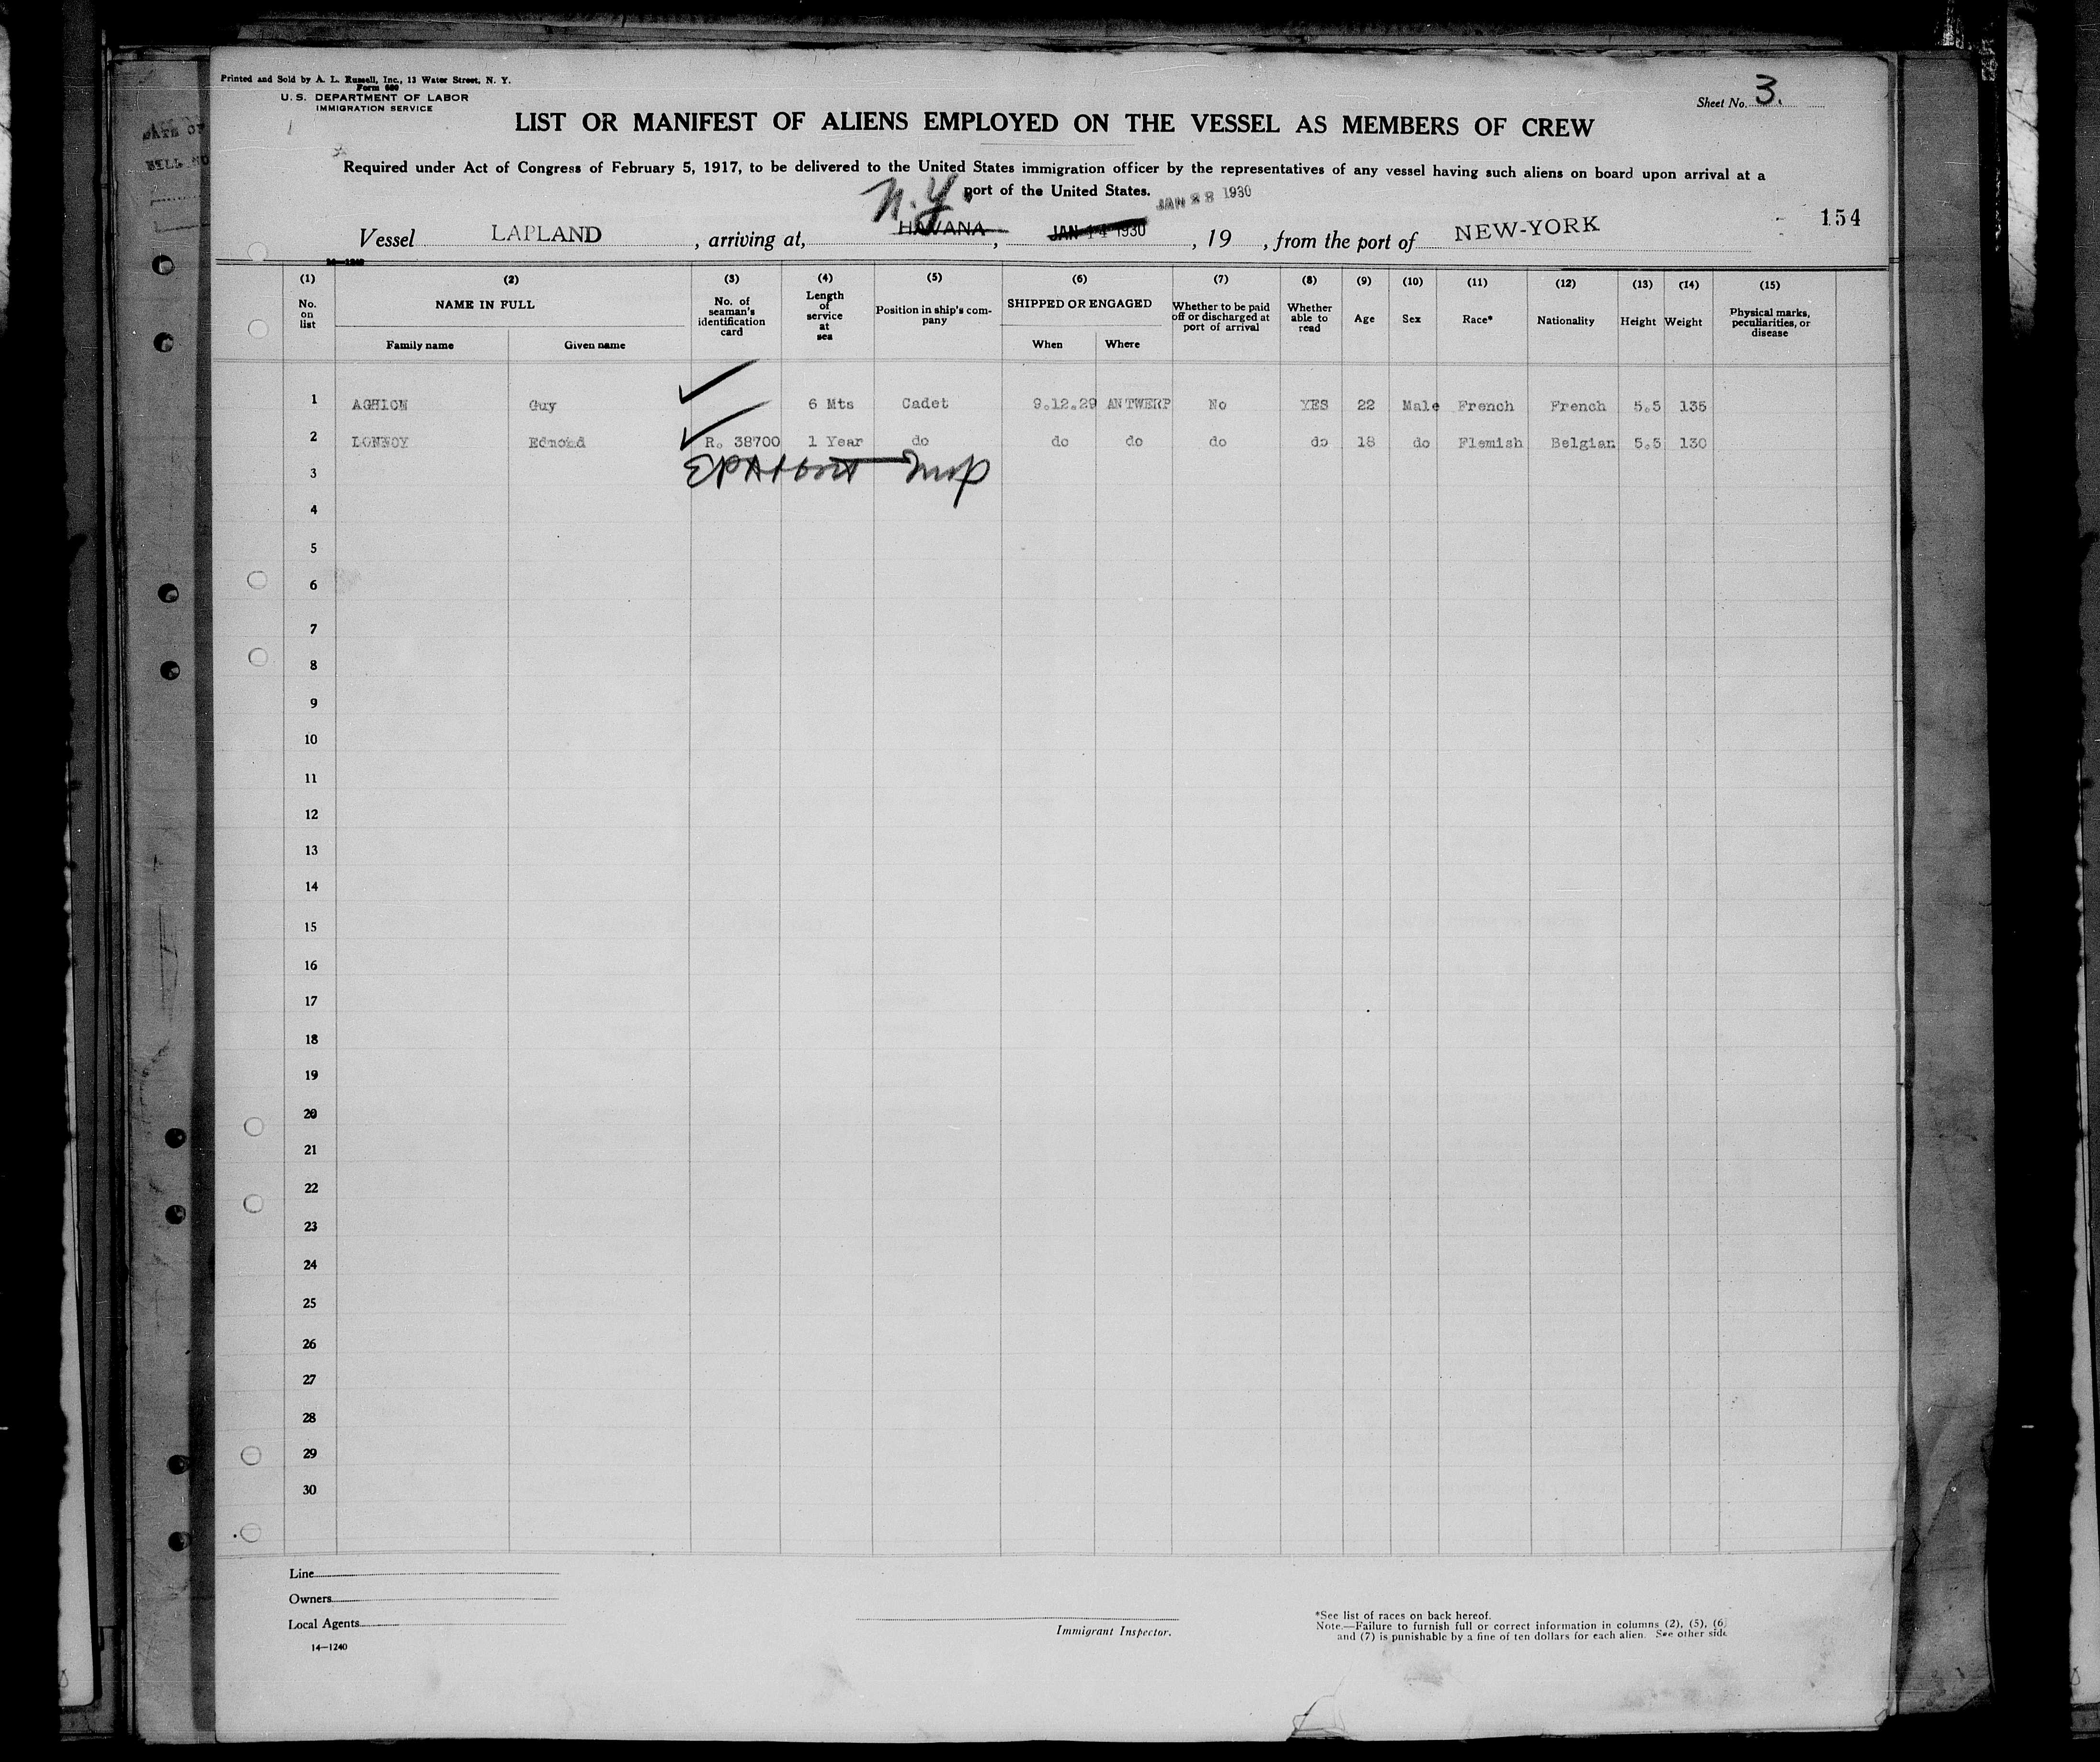 Printed and Sold by A. L. Russell, Inc., 13 Water Street, N. Y.
Form 680
U. S. DEPARTMENT OF LABOR
IMMIGRATION SERVICE
Sheet No. 3.
LIST OR MANIFEST OF ALIENS EMPLOYED ON THE VESSEL AS MEMBERS OF CREW
Required under Act of Congress of February 5, 1917, to be delivered to the United States immigration officer by the representatives of any vessel having such aliens on board upon arrival at a
port of the United States.
N.Y. JAN 28 1930
Vessel LAPLAND, arriving at, HAVANA, JAN 14 1930, 19 , from the port of NEW-YORK
154
14—1240
(1) (2) (3) (4) (5) (6) (7) (8) (9) (10) (11) (12) (13) (14) (15)
No. on list NAME IN FULL Family name Given name No. of seaman's identification card Length of service at sea Position in ship's company SHIPPED OR ENGAGED When Where Whether to be paid off or discharged at port of arrival Whether able to read Age Sex Race* Nationality Height Weight Physical marks, peculiarities, or disease
1 AGHION Guy 6 Mts Cadet 9.12.29 ANTWERP No YES 22 Male French French 5.5 135
2 LONNOY Edmond R. 38700 1 Year do do do do do 18 do Flemish Belgian 5.5 130
3
4
5
6
7
8
9
10
11
12
13
14
15
16
17
18
19
20
21
22
23
24
25
26
27
28
29
30
Line
Owners
Local Agents
14—1240
Immigrant Inspector.
*See list of races on back hereof.
Note.—Failure to furnish full or correct information in columns (2), (5), (6)
and (7) is punishable by a fine of ten dollars for each alien. See other side